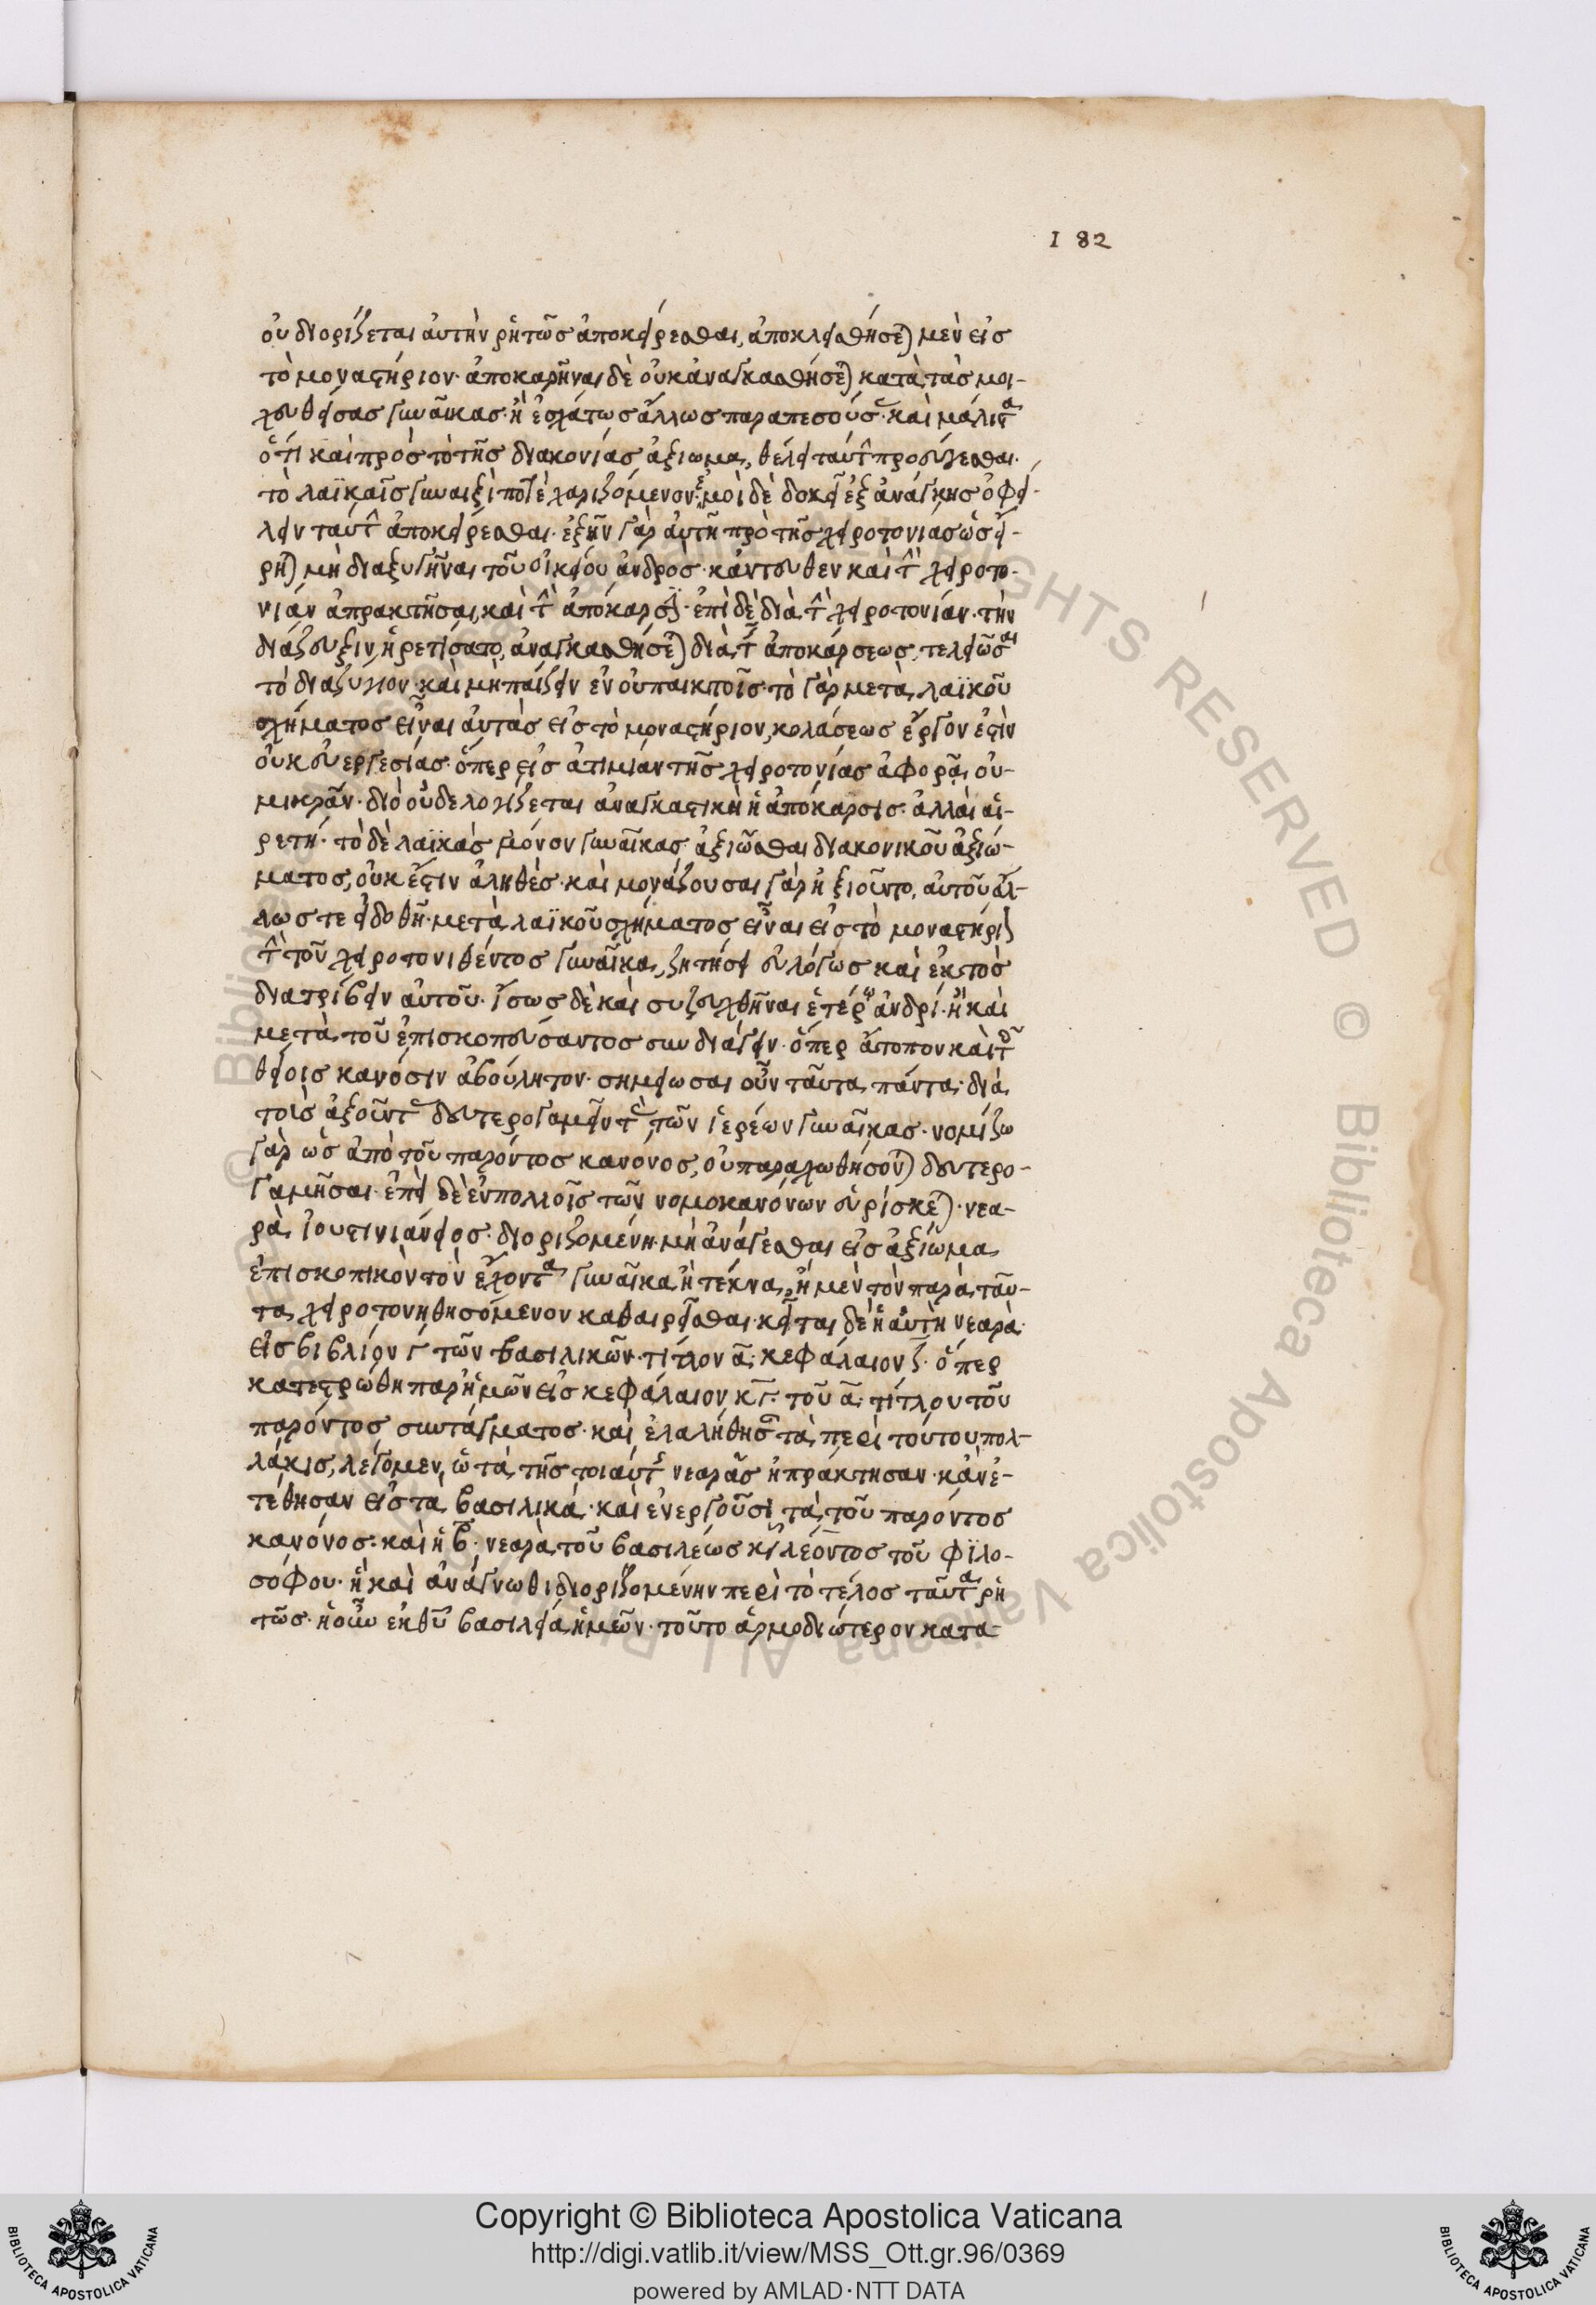 182
οὐ διορίζεται αὐτὴν ῥητῶς ἀποκείρεσθαι, ἀποκλεισθήσεται μὲν εἰς
τὸ μοναστήριον· ἀποκαρῆναι δὲ οὐκ ἀναγκασθήσεται κατὰ τὰς μοι-
χευθείσας γυναῖκας· ἢ ἐσχάτως ἄλλως παραπεσούσας· καὶ μάλιστα
ὅτι καὶ πρὸς τὸ τῆς διακονίας ἀξίωμα, θέλει ταύτην προσέχεσθαι·
τὸ λαϊκαῖς γυναιξί ποτε χαριζόμενον· ἐμοὶ δὲ δοκεῖ ἐξ ἀνάγκης ὀφεί-
λειν ταύτην ἀποκείρεσθαι· ἐξῆν γὰρ αὐτῇ πρὸ τῆς χειροτονίας ὡς εἴ-
ρηται μὴ διαζυγῆναι τοῦ οἰκείου ἀνδρός· κἀντεῦθεν καὶ τὴν χειροτο-
νίαν ἀπρακτῆσαι, καὶ τὴν ἀπόκαρσιν· ἐπεὶ δὲ διὰ τὴν χειροτονίαν· τὴν
διάζευξιν ᾑρετίσατο, ἀναγκασθήσεται διὰ τῆς ἀποκάρσεως, τελειῶσαι
τὸ διαζύγιον· καὶ μὴ παίζειν ἐν οὐ παικτοῖς· τὸ γὰρ μετὰ λαϊκοῦ
σχήματος εἶναι αὐτὰς εἰς τὸ μοναστήριον, κολάσεως ἔργον ἐστὶν
οὐκ εὐεργεσίας· ὅπερ εἰς ἀτιμίαν τῆς χειροτονίας ἀφορᾷ οὐ-
μικράν· διὸ οὐδὲ λογίζεται ἀναγκαστικὴ ἡ ἀπόκαρσις· ἀλλὰ αἱ-
ρετή· τὸ δὲ λαϊκὰς μόνον γυναῖκας ἀξιῶσθαι διακονικοῦ ἀξιώ-
ματος, οὐκ ἔστιν ἀληθές· καὶ μονάζουσαι γὰρ ἠξιοῦντο, αὐτοῦ ἄλ-
λως τε εἰ δοθῇ· μετὰ λαϊκοῦ σχήματος εἶναι εἰς τὸ μοναστήριον
τὴν τοῦ χειροτονιθέντος γυναῖκα, ζητήσει εὐλόγως καὶ ἐκτὸς
διατρίβειν αὐτοῦ· ἴσως δὲ καὶ συζευχθῆναι ἑτέρῳ ἀνδρί· ἢ καὶ
μετὰ τοῦ ἐπισκοπεύσαντος συνδιάγειν· ὅπερ ἄτοπον καὶ τοῖς
θείοις κανόσιν ἀβούλητον· σημείωσαι οὖν ταῦτα πάντα· διὰ
τοὺς ἀξιοῦντας δευτερογαμεῖν τὰς τῶν ἱερέων γυναῖκας· νομίζω
γὰρ ὡς ἀπὸ τοῦ παρόντος κανόνος, οὐ παραχωθήσονται δευτερο-
γαμῆσαι· ἐπεὶ δὲ ἐν πολλοῖς τῶν νομοκανόνων εὑρίσκεται· νεα-
ρὰ Ἰουστινιάνειος· διοριζομένη μὴ ἀνάγεσθαι εἰς ἀξίωμα
ἐπισκοπικὸν τὸν ἔχοντα γυναῖκα ἢ τέκνα, ἢ μὲν τὸν παρὰ ταῦ-
τα χειροτονηθησόμενον καθαιρεῖσθαι· κεῖται δὲ ἡ αὐτὴ νεαρὰ
εἰς βιβλίον γ τῶν βασιλικῶν· τίτλον α· κεφάλαιον ζ· ὅπερ
κατεστρώθη παρ' ἡμῶν εἰς κεφάλαιον κγ· τοῦ α· τίτλου τοῦ
παρόντος συντάγματος· καὶ ἐλαλήθησαν τὰ περὶ τούτου πολ-
λάκις, λέγομεν, ὡς τὰ τῆς τοιαύτης νεαρᾶς ἠπράκτησαν· κἂν ἐ-
τέθησαν εἰς τὰ βασιλικά· καὶ ἐνεργοῦσι τὰ τοῦ παρόντος
κανόνος· καὶ ἡ β· νεαρὰ τοῦ βασιλέως κυροῦ λέοντος τοῦ φιλο-
σόφου· ἣν καὶ ἀνάγνωθι διοριζομένην περὶ τὸ τέλος ταῦτα ῥη
τῶς· ἡ οὖν ἐκ θεοῦ βασιλεία ἡμῶν· τοῦτο ἁρμοδιώτερον κατα-
Copyright © Biblioteca Apostolica Vaticana
http://digi.vatlib.it/view/MSS_Ott.gr.96/0369
powered by AMLAD·NTT DATA